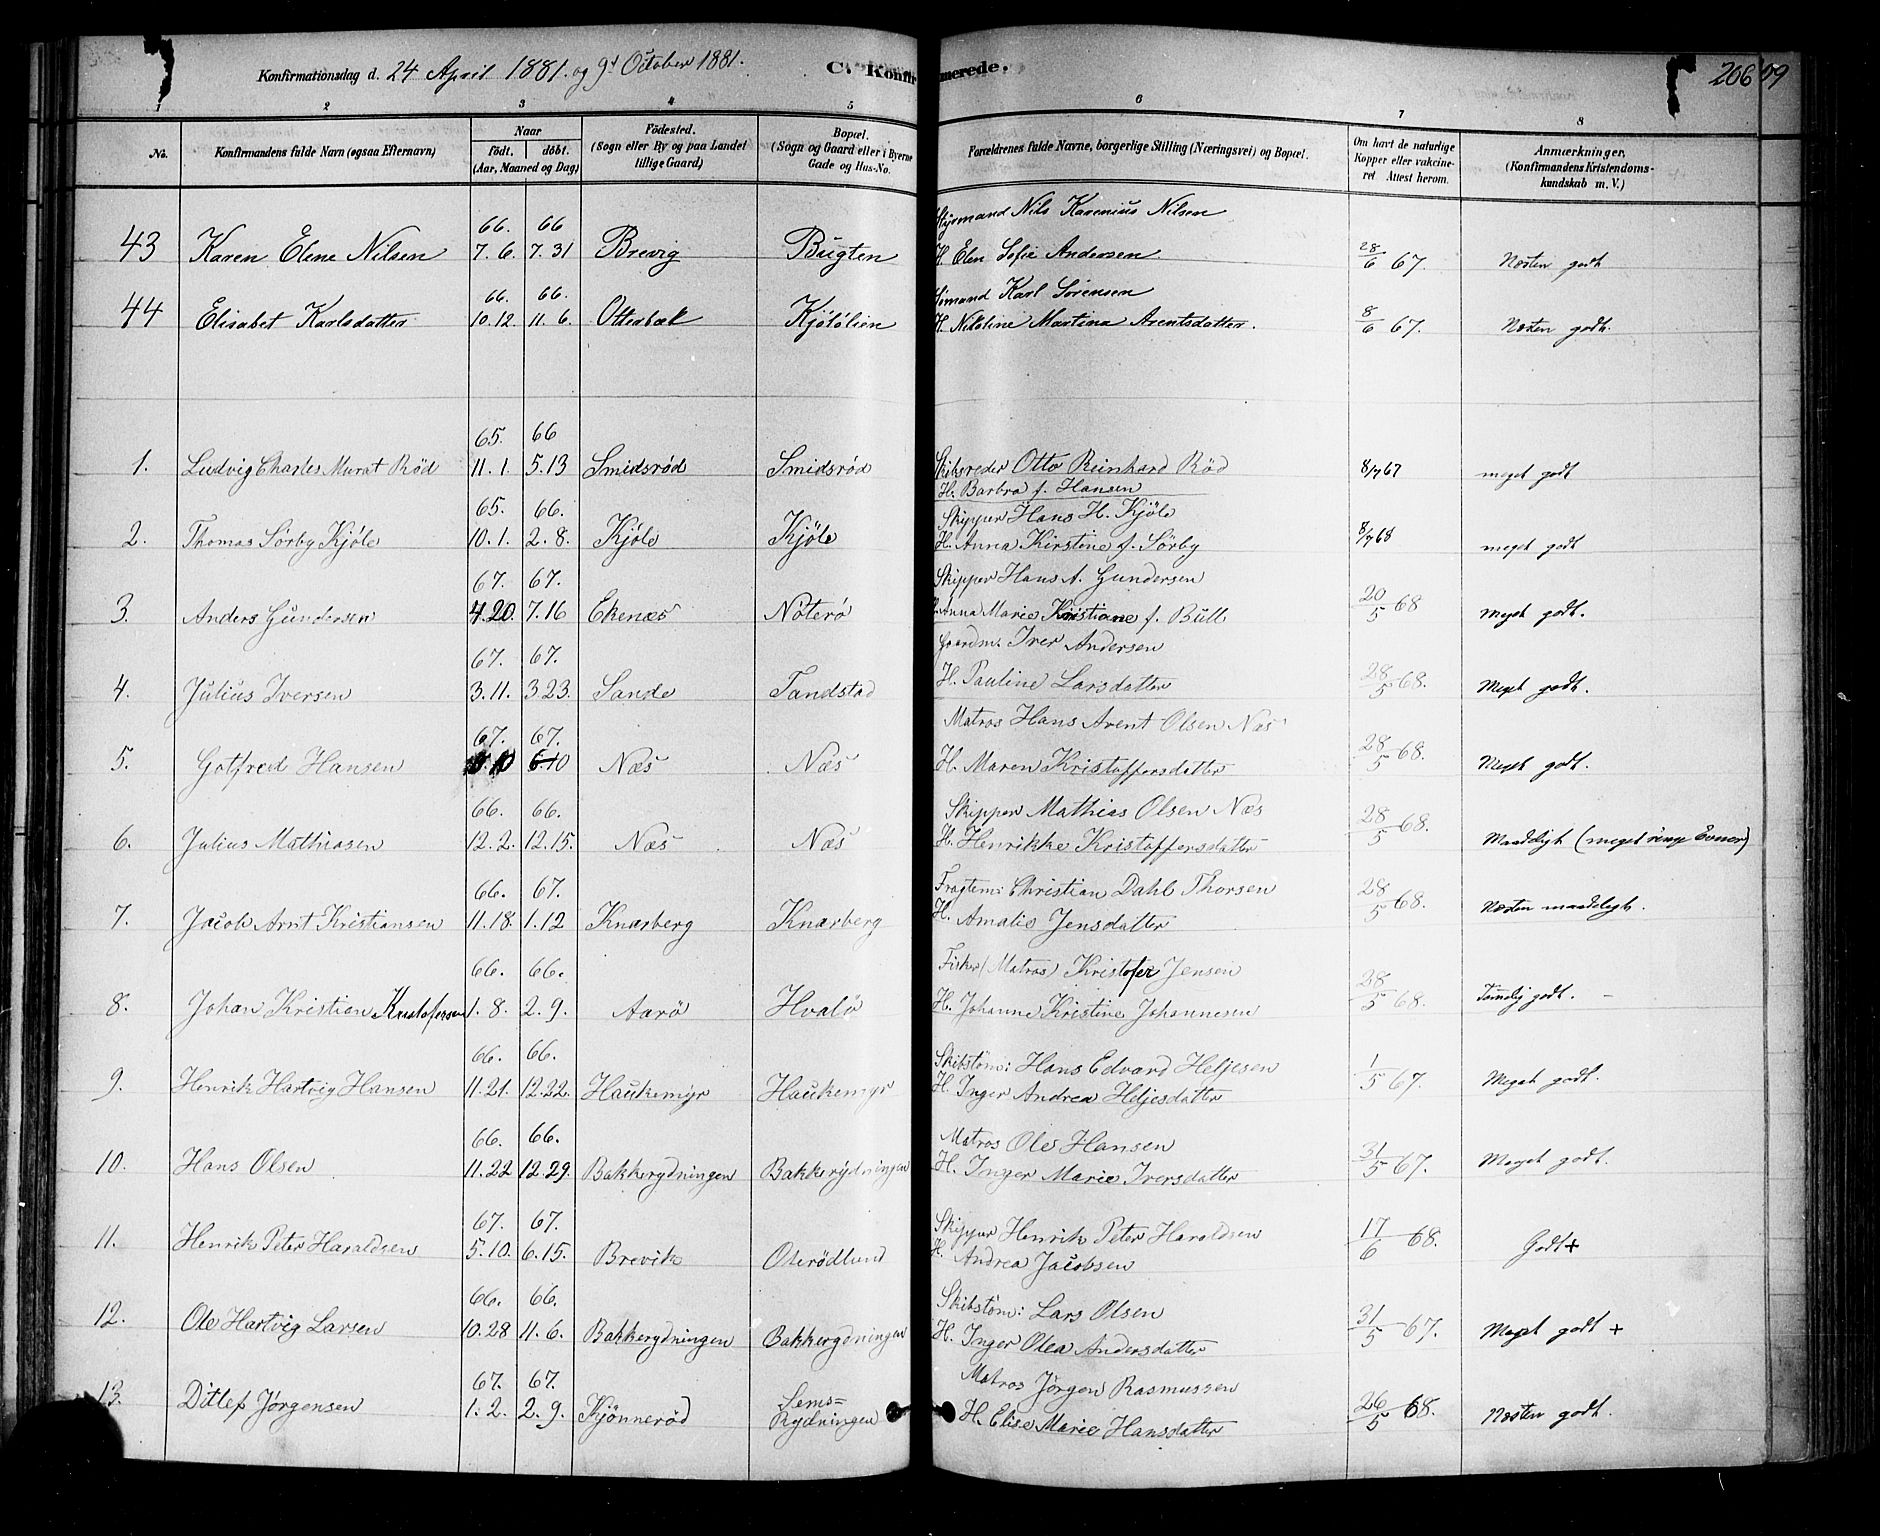 Konfirmationsdag d. 24 April 1881. og 9d October 1881.
C. Konfirmerede.
206
09
1 2 3 4 5 6 7 8
No.
Konfirmandens fulde Navn (ogsaa Efternavn)
Naar
födt. döbt.
(Aar, Maaned og Dag)
Födested.
(Sogn eller By og paa Landet
tillige Gaard)
Bopæl.
(Sogn og Gaard eller i Byerne
Gade og Hus-No.
Forældrenes fulde Navne, borgerlige Stilling (Næringsvei) og Bopæl.
Om havt de naturlige
Kopper eller vakcine-
ret Attest herom.
Anmærkninger,
(Konfirmandens Kristendoms-
kundskab m. V.)
66. 66 Nils Karenius Nilsen
43 Karen Elene Nilsen 7. 6. 7. 31 Brevig Bugten H. Elen Sofie Andersen 28/6 67. Næsten godt
66. 66. Sömand Karl Sörensen
44 Elisabet Karlsdatter 10. 12. 11. 6. Otterbæk Kjölölien H. Nilsine Martina Arentsdatter. 8/6 67. Næsten godt.
65. 66
1. Ludvig Charles Murat Röd 11. 1. 5. 13 Smidsröd Smidsröd Skibsreder Otto Reinhard Röd 8/7 67 meget godt
H. Barbra f. Hansen
65. 66. Skipper Hans H. Kjöle
2. Thomas Sörby Kjöle 10. 1. 2. 8. Kjöle Kjöle H. Anna Kirstine f. Sörby 8/7 68 meget godt
67. 67. Skipper Hans A. Gundersen
3. Anders Gundersen 4. 20. 7. 16 Ekenæs Nöterö H. Anna Marie Kristiane f. Bull 20/5 68 Meget godt.
67. 67. Gaardm. Iver Andersen
4. Julius Iversen 3. 11. 3 23. Sande Tandstad H. Pauline Larsdatter 28/5 68. Meget godt.
67. 67. Matros Hans Arent Olsen Næs
5. Gotfred Hansen 10 6. 10 Næs Næs H. Maren Kristoffersdatter 28/5 68. Meget godt.
66. 66. Skipper Mathias Olsen Næs
6. Julius Mathiasen 12. 2. 12. 15. Næs Næs H. Henrikke Kristoffersdatter 28/5 68. Maadeligt (meget ringe Evner)
66. 67. Fragtem: Christian Dahl Thorsen
7. Jacob Arnt Kristiansen 11. 18. 1. 12 Knarberg Knarberg H. Amalie Jensdatter 28/5 68. Næsten maadeligt.
66. 66. Fisker (Matros) Kristofer Jensen
8. Johan Kristian Kristofersen 1. 8. 2. 9. Aarö Hvalö H. Johanne Kristine Johannesen 28/5 68. Temelig godt. -
66. 66. Skibstöm: Hans Edvard Heljesen
9. Henrik Hartvig Hansen 11. 21. 12. 22. Haukemyr Haukemyr H. Inger Andrea Heljesdatter 1/5 67. Meget godt.
66. 66. Matros Ole Hansen
10. Hans Olsen 11. 22 12. 29. Bakkerydningen Bakkerydningen H. Inger Marie Iversdatter 31/5 67. Meget godt.
67. 67. Skipper Henrik Peter Haraldsen
11. Henrik Peter Haraldsen 5. 10. 6. 15. Brevik Oterödlund H. Andrea Jacobsen 17/6 68. Godt +
66. 66. Skibstöm: Lars Olsen
12. Ole Hartvig Larsen 10. 28 11. 6. Bakkerydningen Bakkerydningen H. Inger Olea Andersdatter 31/5 67. Meget godt +
67. 67. Matros Jörgen Rasmussen
13. Ditlef Jörgensen 1. 2. 2. 9. Kjönneröd Sems=
Rydningen H. Elise Marie Hansdatter 26/5 68. Næsten godt.